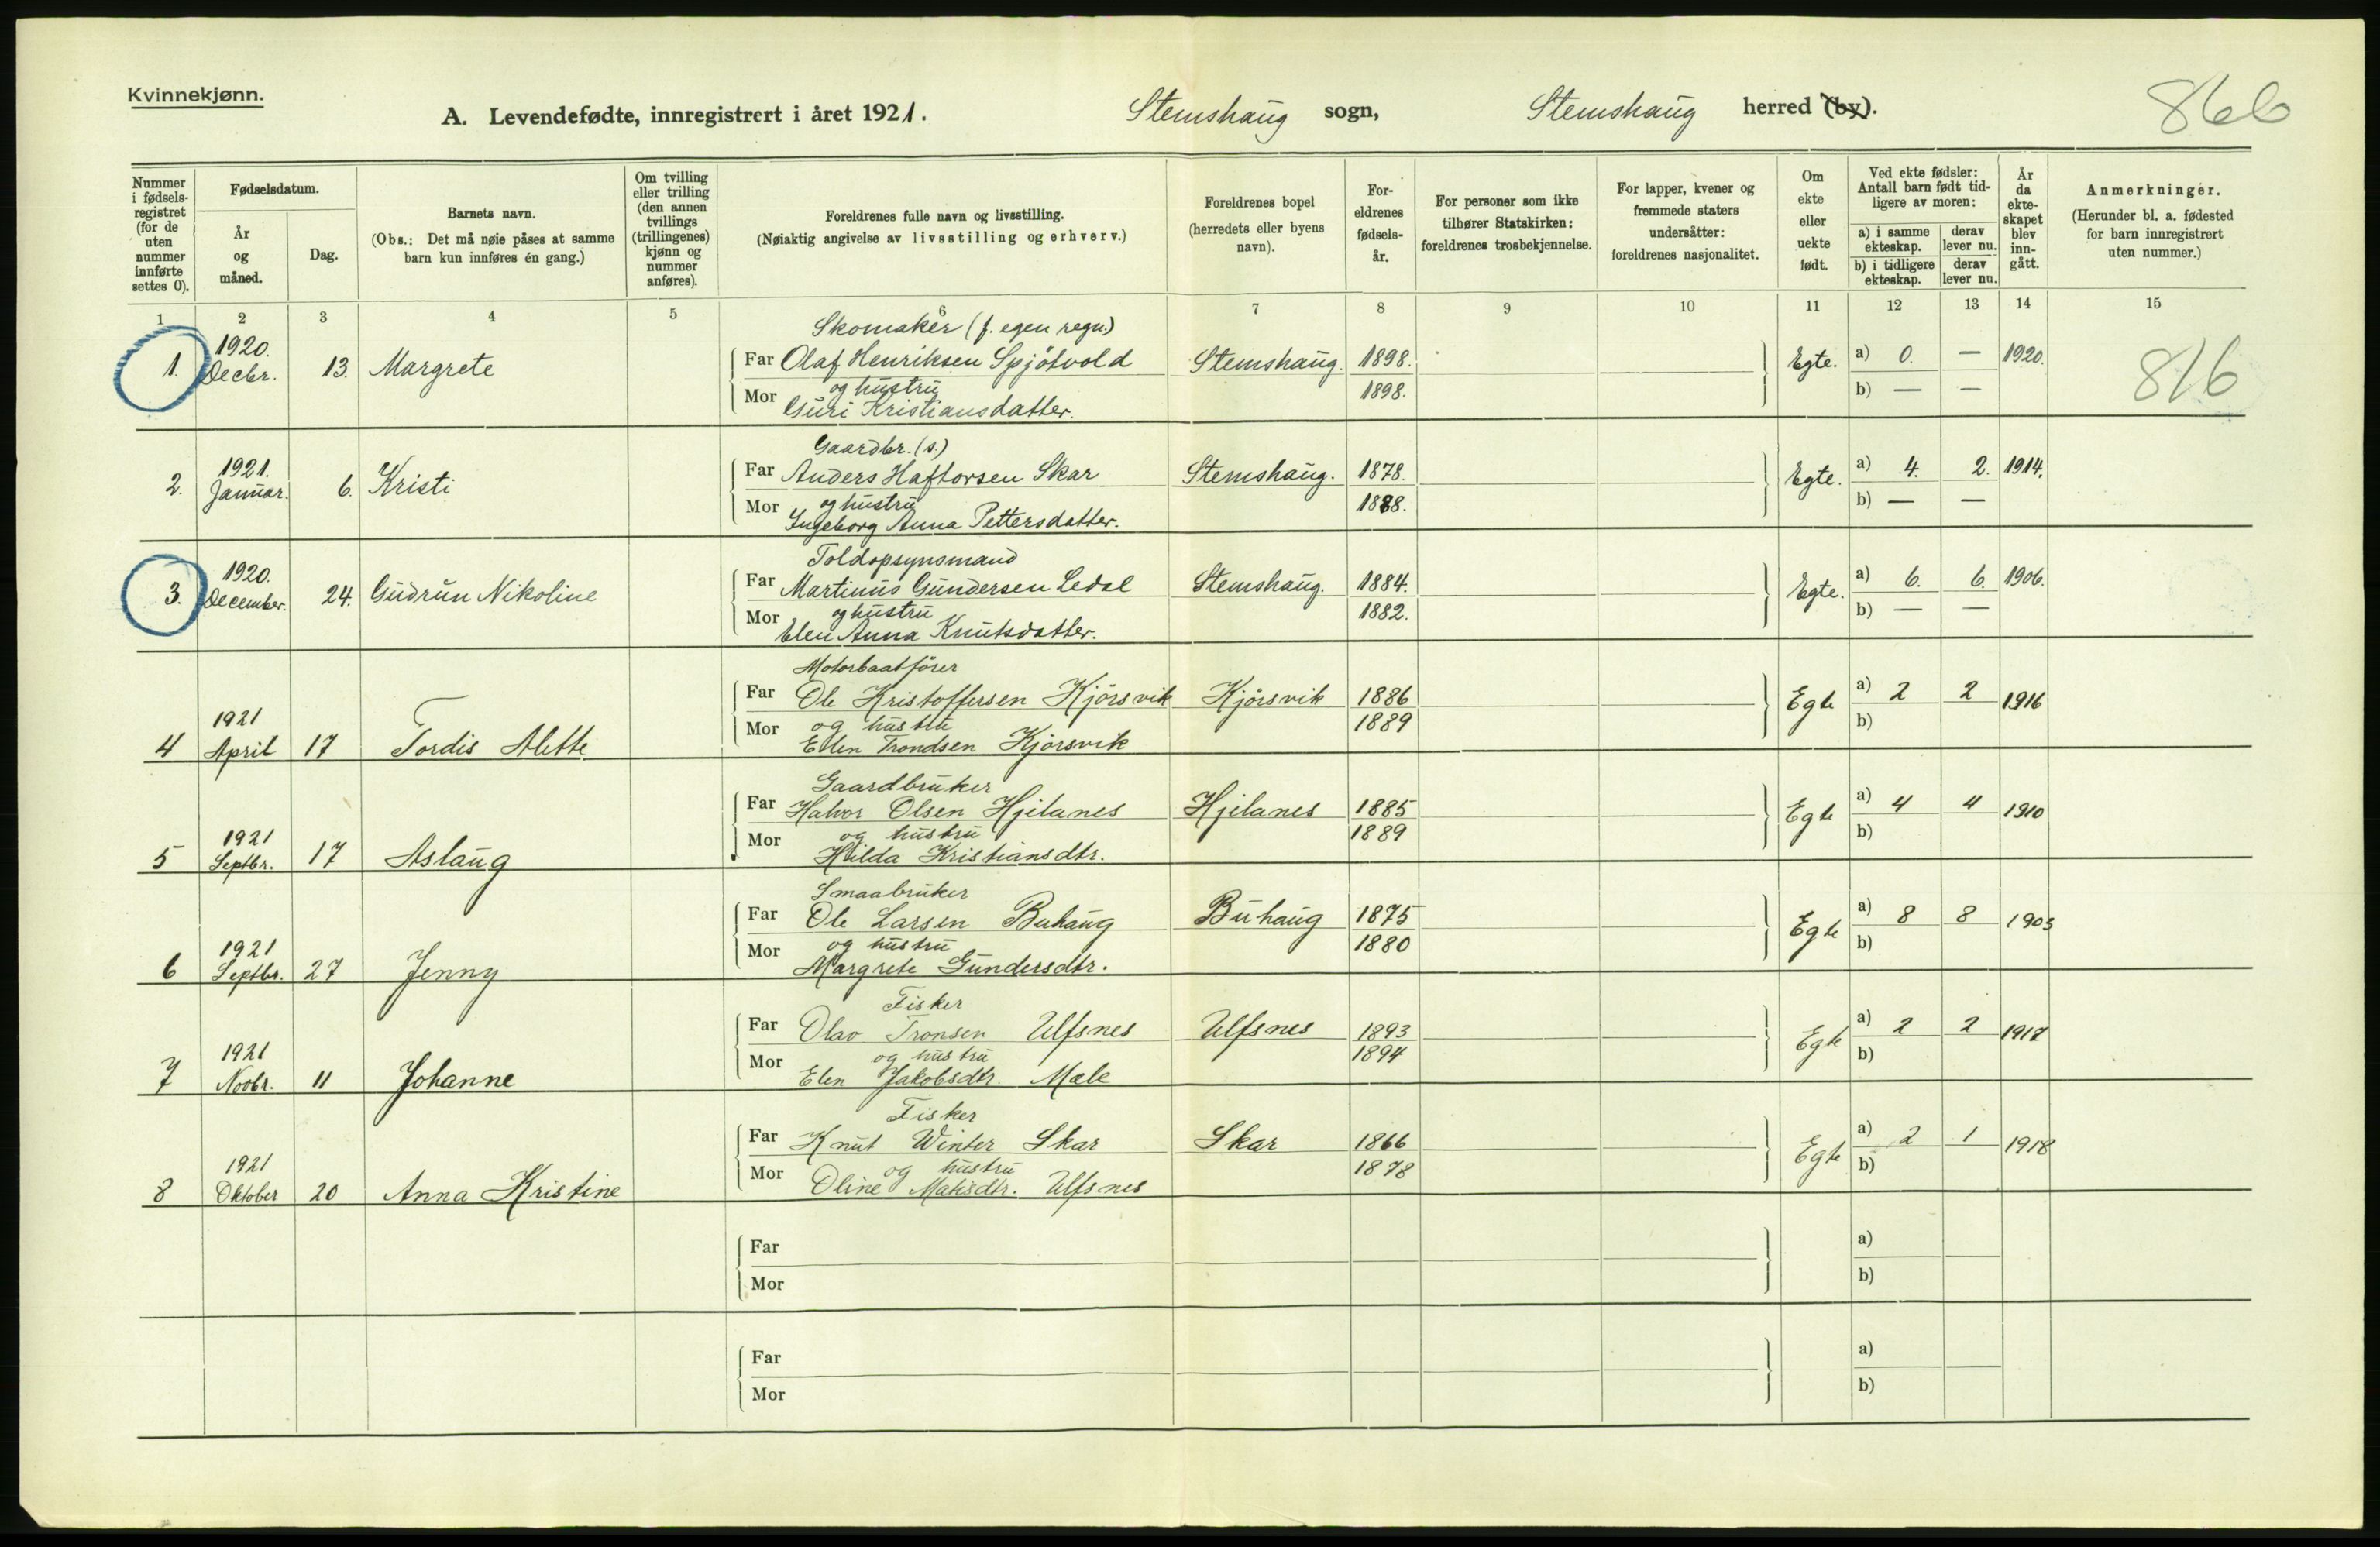 Kvinnekjønn.
A. Levendefødte, innregistrert i året 1921. Stemshaug sogn, Stemshaug herred (by). 866
Nummer i fødsels-registret (for de uten nummer innførte settes 0).
Fødselsdatum.
År og måned.
Dag.
Barnets navn.
(Obs.: Det må nøie påses at samme barn kun innføres én gang.)
Om tvilling eller trilling (den annen tvillings (trillingenes) kjønn og nummer anføres).
Foreldrenes fulle navn og livsstilling.
(Nøiaktig angivelse av livsstilling og erhverv.)
Foreldrenes bopel (herredets eller byens navn).
For-eldrenes fødsels-år.
For personer som ikke tilhører Statskirken: foreldrenes trosbekjennelse.
For lapper, kvener og fremmede staters undersåtter: foreldrenes nasjonalitet.
Om ekte eller uekte født.
Ved ekte fødsler: Antall barn født tid-ligere av moren:
a) i samme ekteskap.
derav lever nu.
b) i tidligere ekteskap.
derav lever nu.
År da ekte-skapet blev inn-gått.
Anmerkninger.
(Herunder bl. a. fødested for barn innregistrert uten nummer.)
1 2 3 4 5 6 7 8 9 10 11 12 13 14 15
Skomaker (f. egen regn.)
1. 1920. Decbr. 13. Margrete Far Olaf Henriksen Spjötvold Stemshaug. 1898. Egte. a) 0. — 1920. 816
Mor og hustru Guri Kristiansdatter. 1898. b) — —
Gaardbr. (s.)
2. 1921. Januar. 6. Kristi Far Anders Haftorsen Skar Stemshaug. 1878. Egte. a) 4. 2. 1914.
Mor og hustru Ingeborg Anna Pettersdatter. 1888. b) — —
Toldopsynsmand
3. 1920. December. 24. Gudrun Nikoline Far Martinus Gundersen Ledal Stemshaug. 1884. Egte. a) 6. 6. 1906.
Mor og hustru Elen Anna Knutsdatter. 1882. b) — —
Motorbaatförer
4 1921 April 17 Tordis Alette Far Ole Kristoffersen Kjörsvik Kjörsvik 1886 Egte a) 2 2 1916
Mor og hustru Ellen Trondsen Kjörsvik 1889 b)
Gaardbruker
5 1921 Septbr. 17 Aslaug Far Halvor Olsen Hjelanes Hjelanes 1885 Egte a) 4 4 1910
Mor og hustru Hilda Kristiansdtr. 1889 b)
Smaabruker
6 1921 Septbr. 27 Jenny Far Ole Larsen Buhaug Buhaug 1875 Egte a) 8 8 1903
Mor og hustru Margrete Gundersdtr. 1880 b)
Fisker
7 1921 Novbr. 11 Johanne Far Olav Tronsen Ulfsnes Ulfsnes 1893 Egte a) 2 2 1917
Mor og hustru Elen Jakobsdtr. Mæle 1894 b)
Fisker
8 1921 Oktober 20 Anna Kristine Far Knut Winter Skar Skar 1866 Egte a) 2 1 1918
Mor og hustru Oline Ulfsnes 1878 b)
Far a)
Mor b)
Far a)
Mor b)